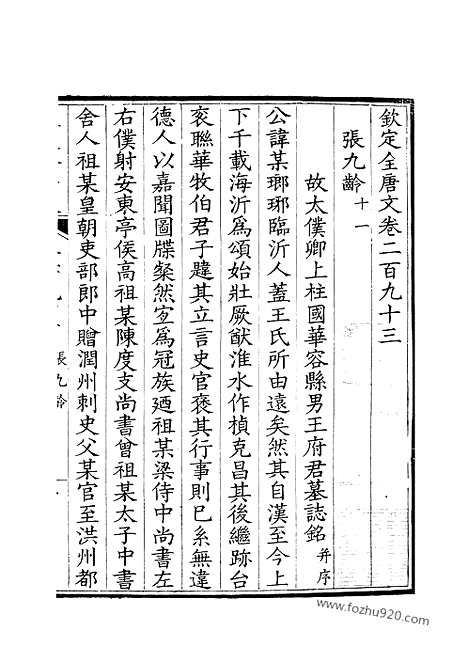 欽定全唐文卷二百九十三
張九齡十一
故太僕卿上柱國華容縣男王府君墓誌銘并序
公諱某瑯琊臨沂人蓋王氏所由遠矣然其自漢至今上
下千載海沂爲頌始壯厥猷淮水作楨克昌其後繼跡台
袞聯華牧伯君子韙其立言史官褒其行事則已系無違
德人以嘉聞圖牒粲然寔爲冠族廼祖某梁侍中尚書左
右僕射安東亭侯高祖某陳度支尚書曾祖某太子中書
舍人祖某皇朝吏部郎中贈潤州刺史父某官至洪州都
張九齡
www.fozhu920.com